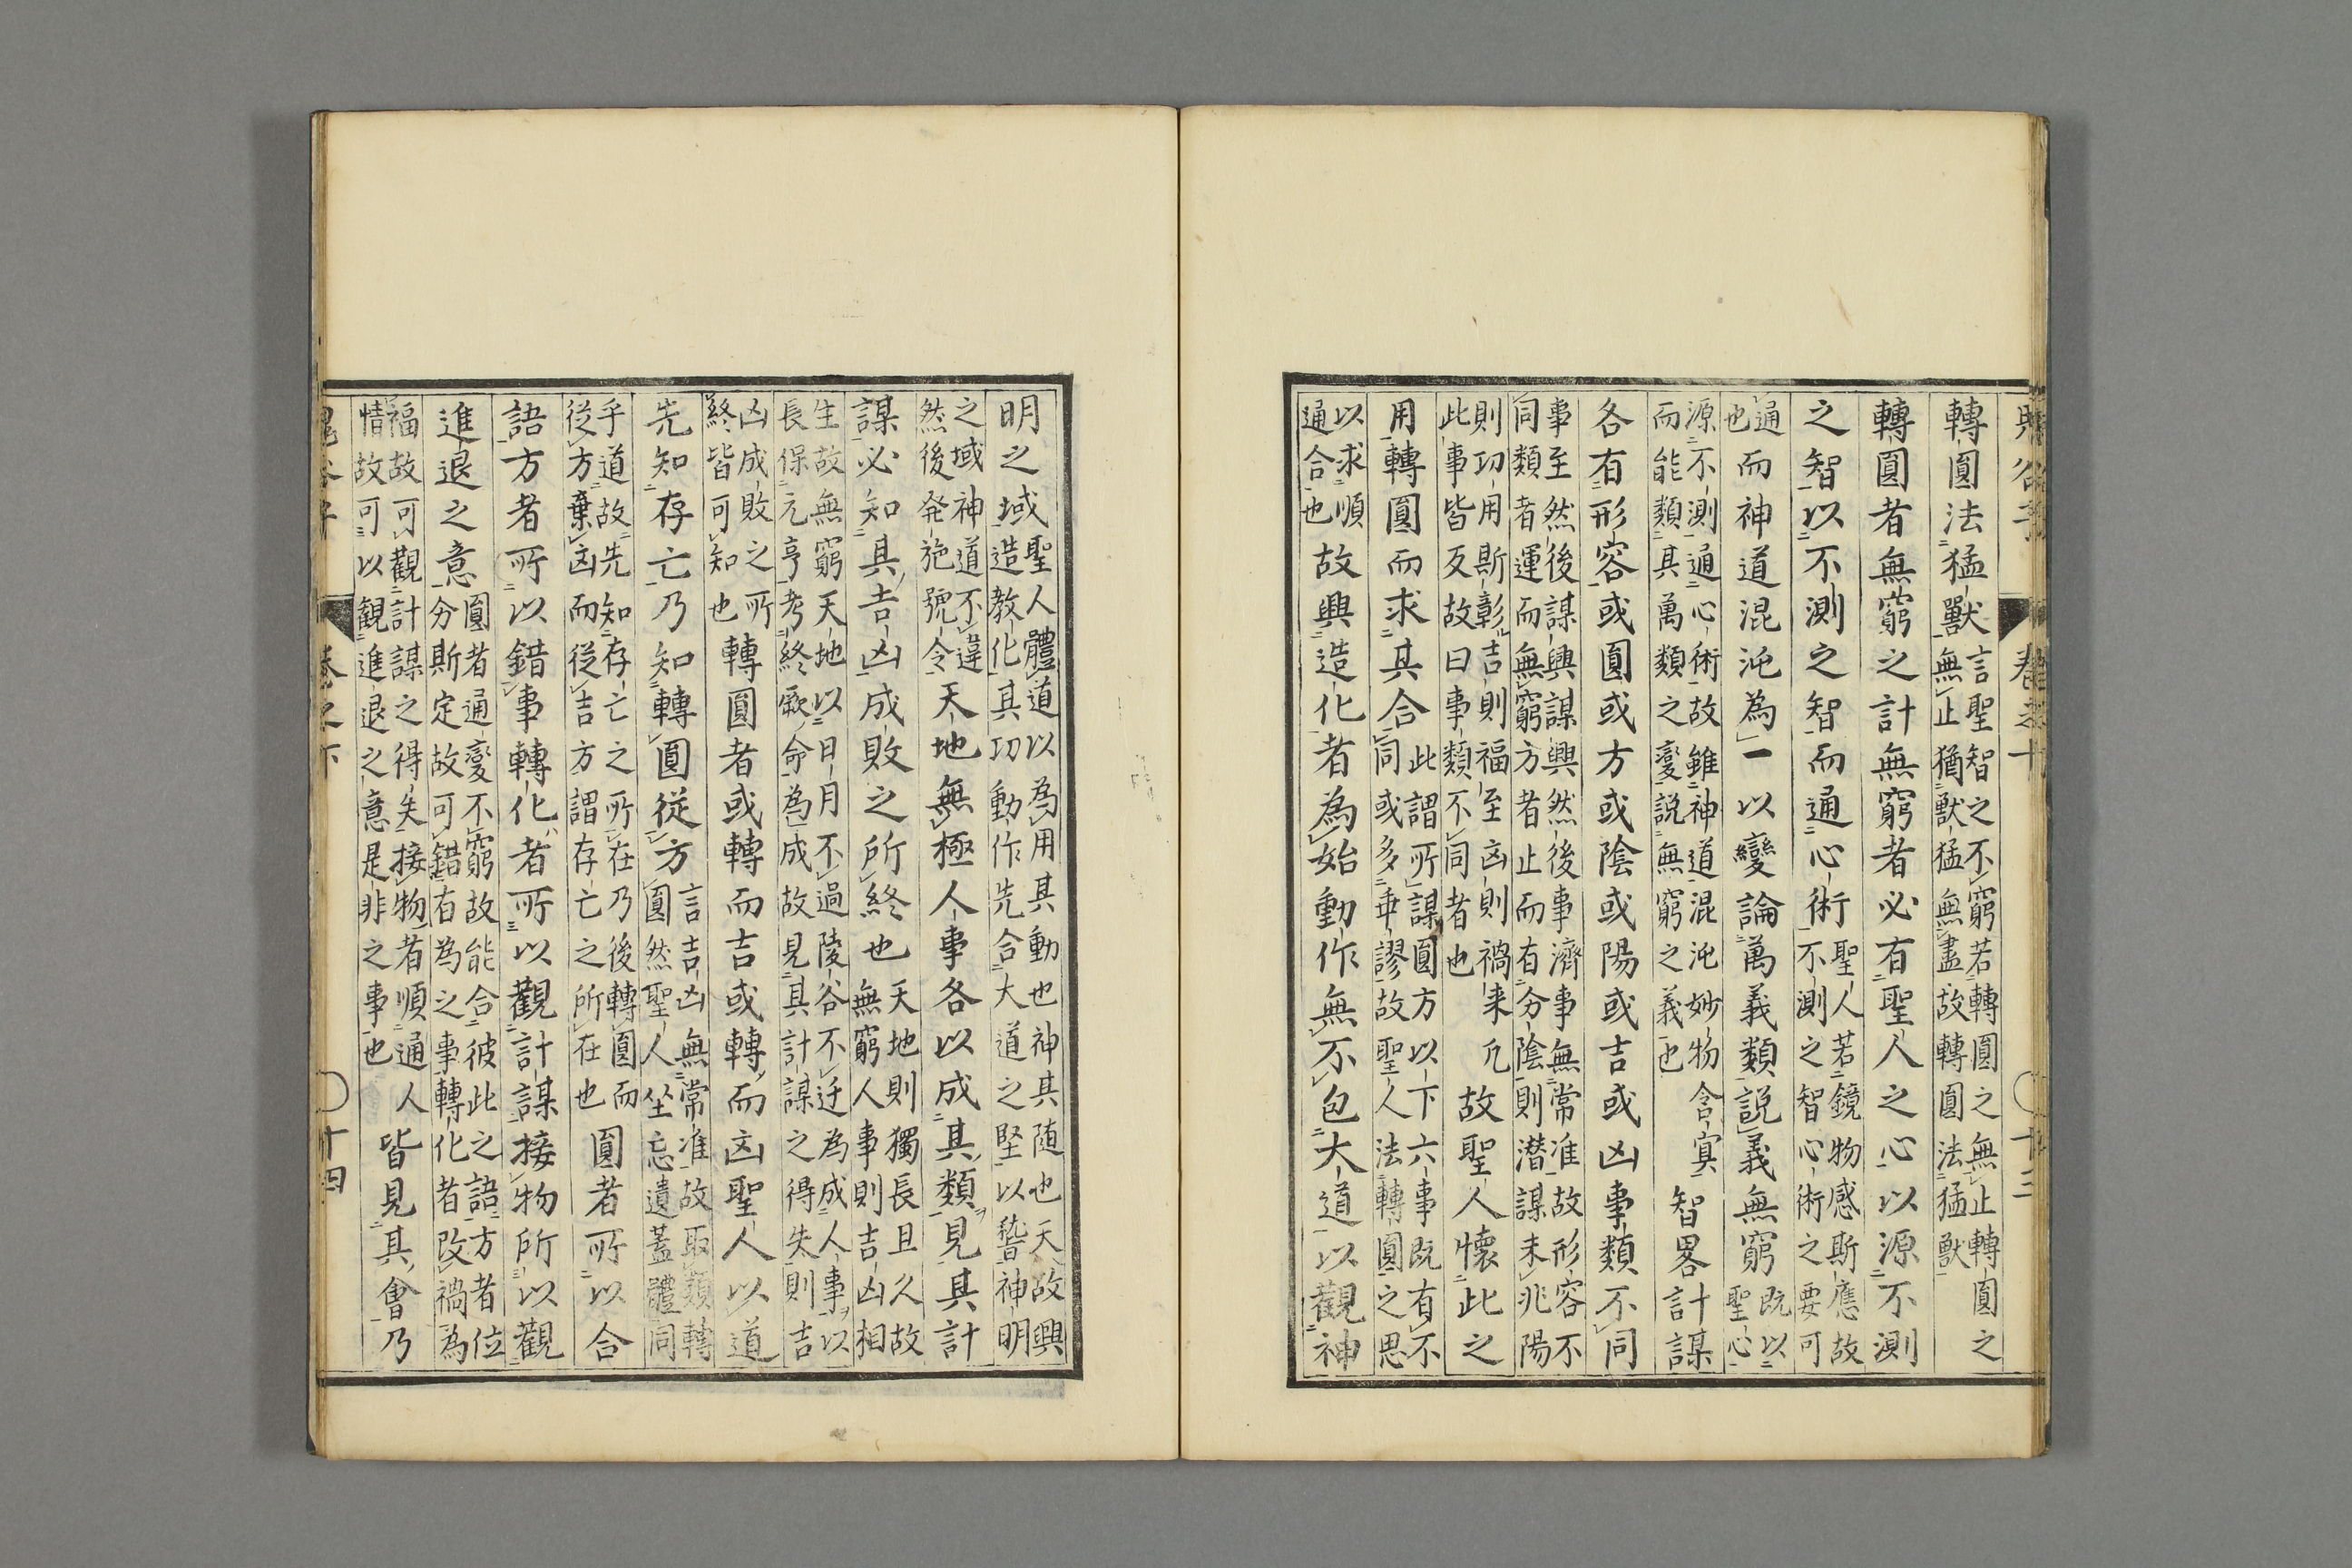 鬼谷子 卷之下 十三
轉圓法猛獸言聖智之不窮若轉圓之無止轉圓之無止猶獸猛無盡故轉圓法猛獸
轉圓者無窮之計無窮者必有聖人之心以源不測
之智以不測之智而通心術聖人若鏡物感斯應故不測之智心術之要可
通也而神道混沌為一以變論萬義類説義無窮既以聖心
源不測通心術故雖神道混沌妙物含冥而能類其萬類之變説無窮之義也智畧計謀
各有形容或圓或方或陰或陽或吉或凶事類不同
事至然後謀興謀興然後事濟事無常准故形容不同類者運而無窮方者止而有分陰則潜謀未兆陽
則功用斯彰吉則福至凶則禍来凡此事皆反故曰事類不同者也故聖人懷此之
用轉圓而求其合此謂所謀圓方以下六事既有不同或多乖謬故聖人法轉圓之思
以求順通合也故興造化者為始動作無不包大道以觀神
明之域聖人體道以為用其動也神其随也天故興造教化其功動作先合大道之堅以稽神明
之域神道不違然後発施號令天地無極人事各以成其類見其計
謀必知其吉凶成敗之所終也天地則獨長且久故無窮人事則吉凶相
生故無窮天地以日月不過陵谷不迁為成人事以長保元亨考終厥命為成故見其計謀之得失則吉
凶成敗之所終皆可知也轉圓者或轉而吉或轉而凶聖人以道
先知存亡乃知轉圓従方言吉凶無常准故取類轉圓然聖人坐忘遺蓋體同
乎道故先知存亡之所在乃後轉圓而従方棄凶而従吉方謂存亡之所在也圓者所以合
語方者所以錯事轉化者所以觀計謀接物所以觀
進退之意圓者通變不窮故能合彼此之語方者位分斯定故可錯有為之事轉化者改禍為
福故可觀計謀之得失接物者順通人情故可以観進退之意是非之事也皆見其會乃
鬼谷子 卷之下 十四